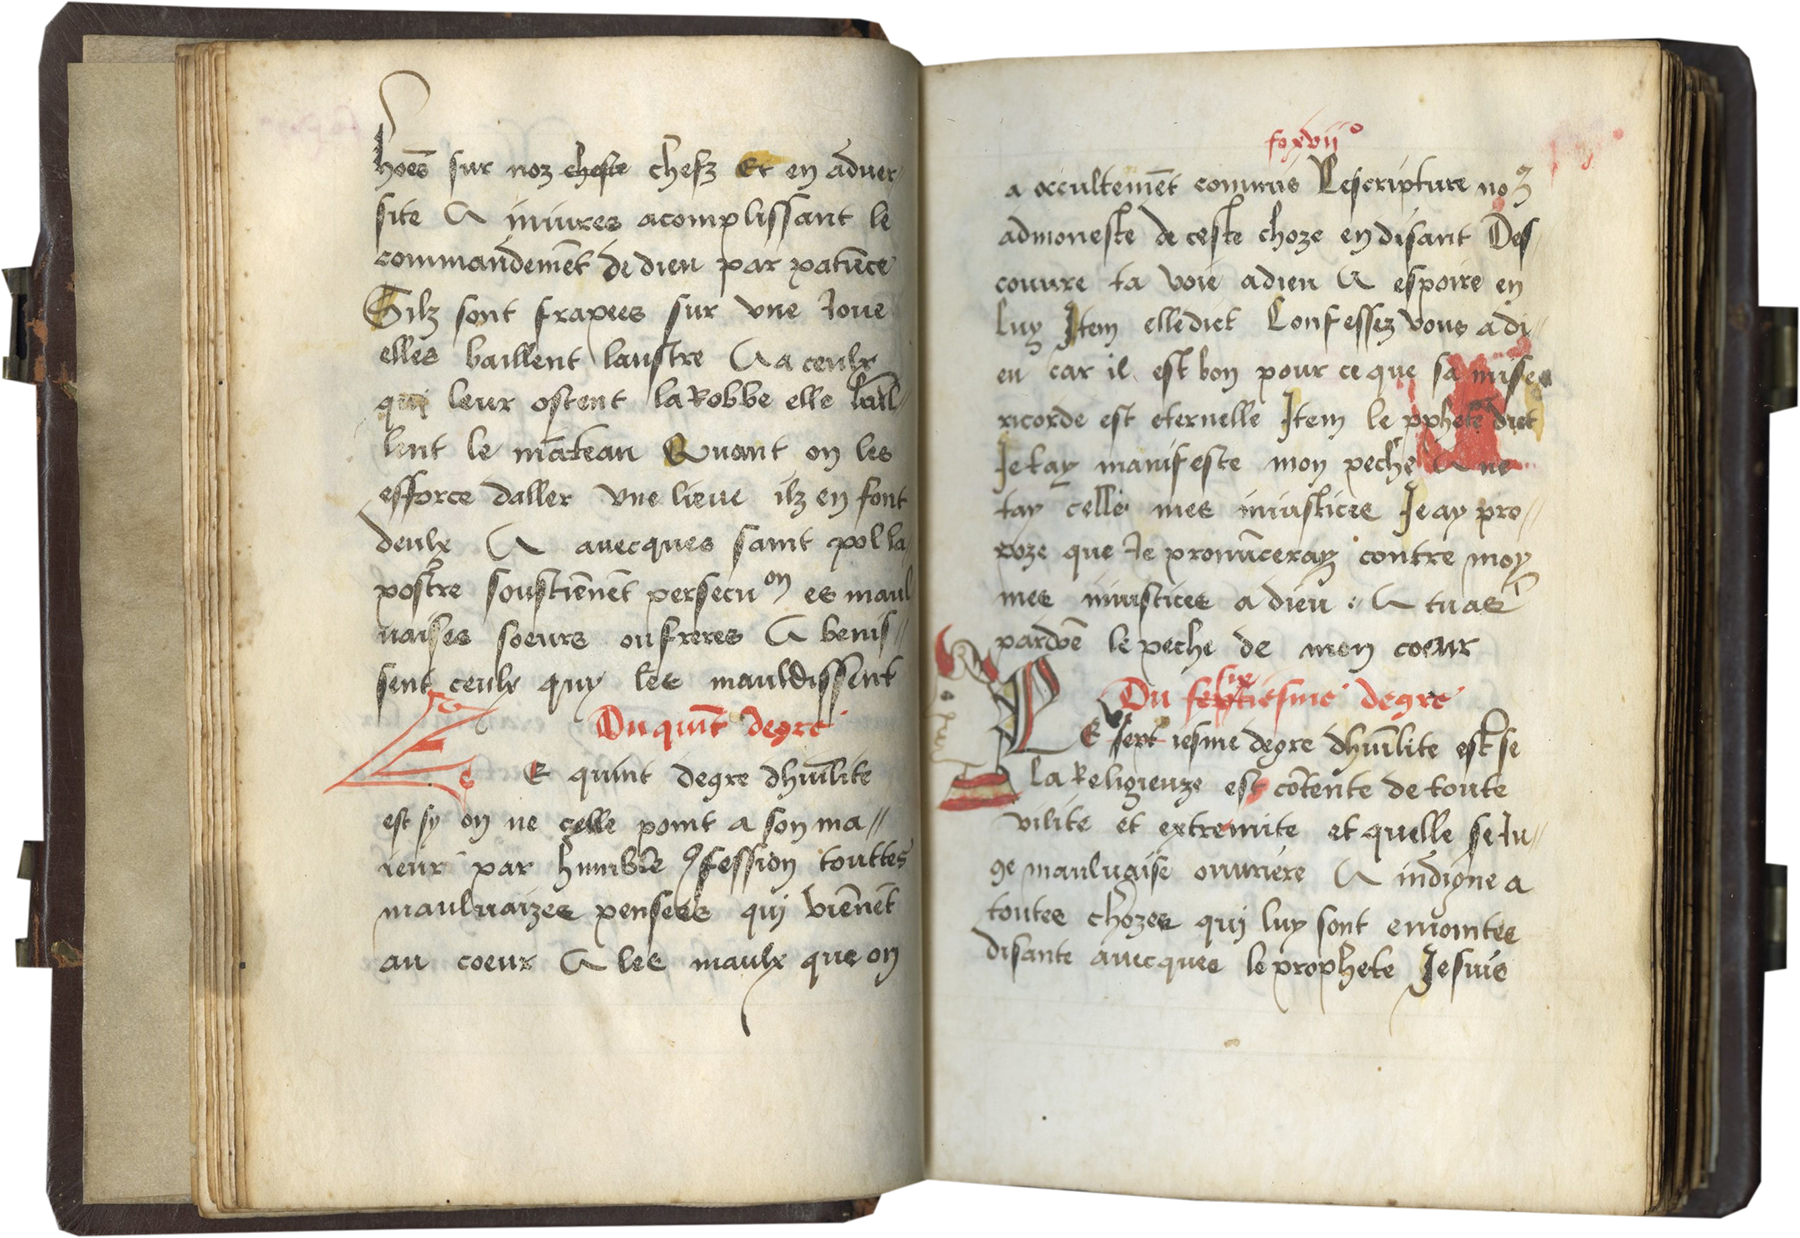 hoēs sur noz cheste chefz Et en aduer-
site & iniures acomplissant le
commandemēt de dieu par patiēce
Silz sont frapees sur vne Joue
elles baillent laustre & a ceulx
qui leur ostent la Robbe elle bail-
lent le māteau Quant on les
efforce daller vne lieue ilz en font
deulx & auecques saint pol la-
postre soustiēnēt persecuon es maul
uaises soeurs ou freres & benis-
sent ceulx quy les mauldissent
Du quīt degre
Le E quint degre dhūilite
est sy on ne celle point a son ma-
ieur par humble 9fession touttes
mauluaizes pensees qui viēnēt
au coeur & les maulx que on
foxvii°
a occultemēt commis Lescripture no9
admoneste de ceste choze en disant Des-
couure ta voie a dieu & espoire en
luy Item elle dict Confessez vous a di-
eu car il est bon pour ce que sa mise-
ricorde est eternelle Item le pphete dict
Je tay manifeste mon peche & ne
tay celle mes iniustices Je ay pro-
poze que Je pronūceray contre moy
mes iniustices a dieu : & tu as
pardōe le peche de mon coeur
Du septiesme six degre
LE sept vi iesme degre dhūilite est se
la Religieuze est cōtente de toute
vilite et extremite et quelle se Ju-
ge mauluaise ouuriere & indigne a
toutes chozes qui luy sont eniointes
disante auecques le prophete Je suis